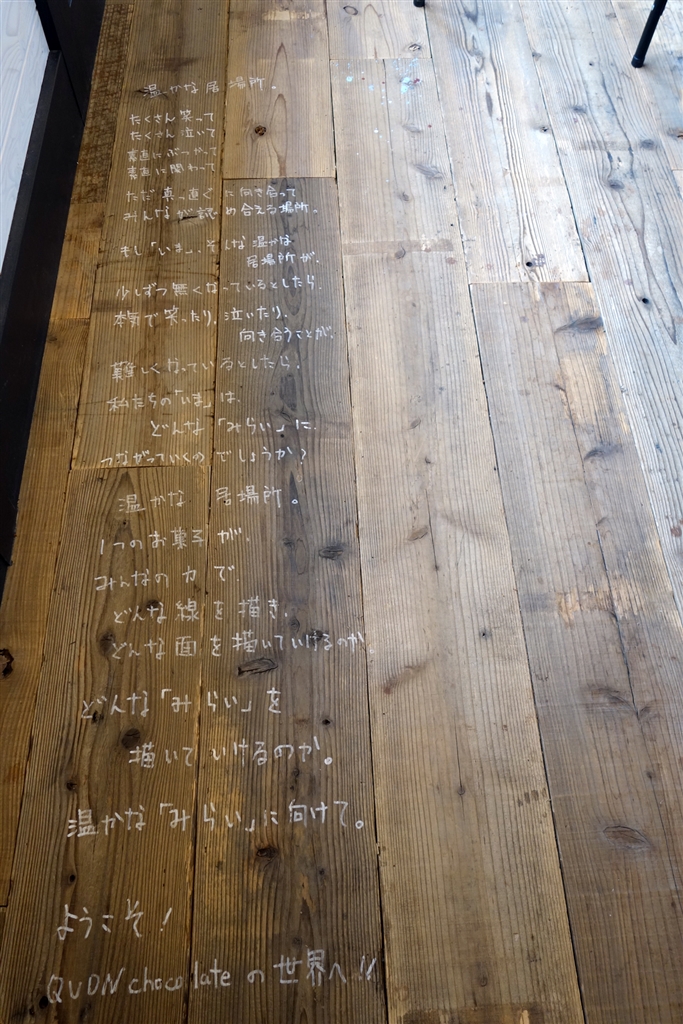 温かな居場所。
たくさん笑って
たくさん泣いて
素直にぶつかって
素直に関わって
ただ真っ直ぐに向き合って
みんなが認め合える場所。
もし「いま」、そんな温かな
居場所が、
少しずつ無くなっているとしたら、
本気で笑ったり、泣いたり、
向き合うことが、
難しくなっているとしたら、
私たちの「いま」は、
どんな「みらい」に、
つながっていくのでしょうか?
温かな居場所。
1つのお菓子が、
みんなの力で、
どんな線を描き、
どんな面を描いていけるのか。
どんな「みらい」を
描いていけるのか。
温かな「みらい」に向けて。
ようこそ!
QUON chocolateの世界へ!!